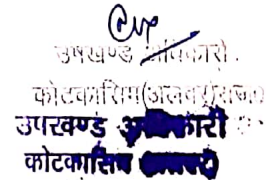 उपखण्ड अधिकारी
कोटकासिम(अलवर)राज०
उपखण्ड अधिकारी
कोटकासिम